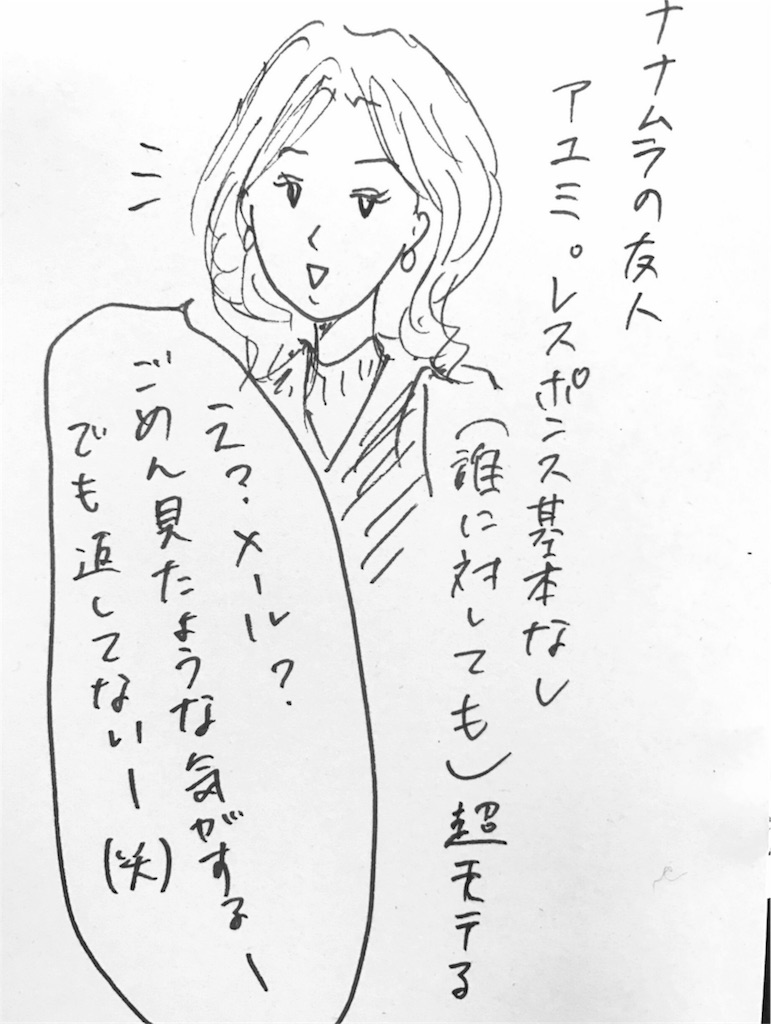 ナナムラの友人
アユミ。レスポンス基本なし
(誰に対しても)超モテる
え?メール?
ごめん見たような気がするー
でも返してないー(笑)